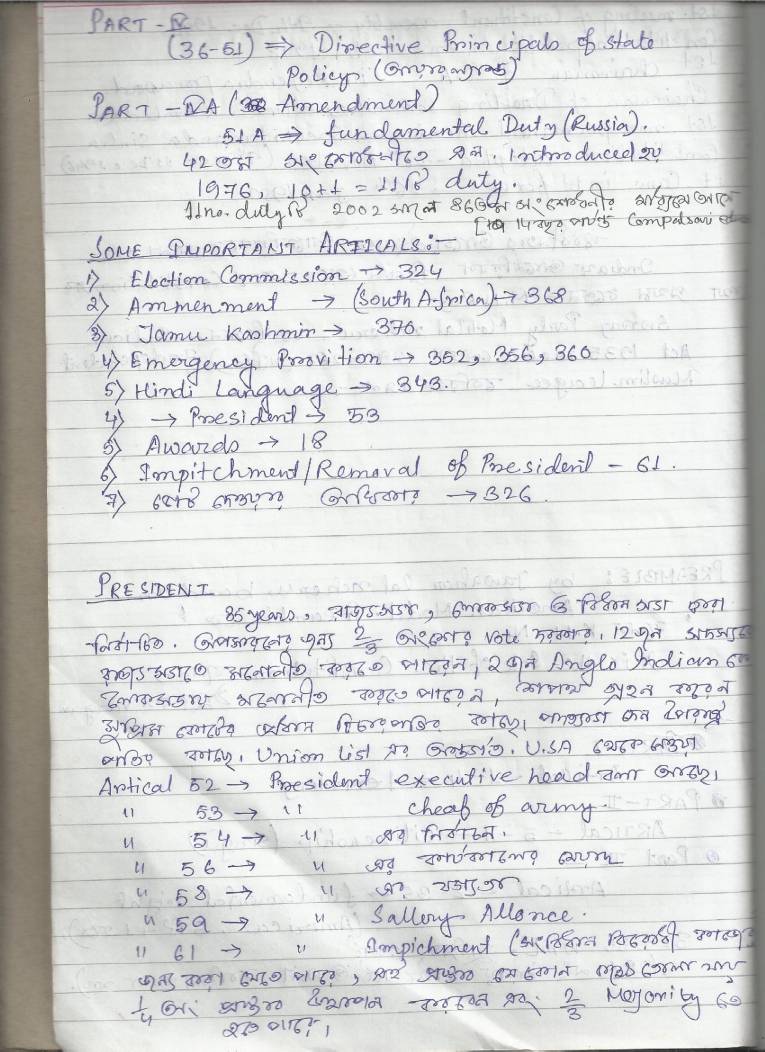 PART-IV
(36-51) ⇒ Directive Principals of state
Policy (আয়ারল্যান্ড)
PART-IVA (Amendment)
51A ⇒ fundamental Duty (Russia).
42তম সংশোধনীতে এল. Introduced হয়
1976, 10+1 = 11টি duty.
11no. dutyটি 2002 সালে 86তম সংশোধনীর মাধ্যমে আসে
14 বছর পর্যন্ত Compalsari
SOME IMPORTANT ARTICALS:-
1) Election Commission → 324
2) Ammenment → (South Africa) → 368
3) Jamu Kashmir → 370
4) Emergency Provition → 352, 356, 360
5) Hindi Language → 343.
4) → President → 53
5) Awards → 18
6) Impitchment/Removal of President - 61.
7) ভোট দেওয়ার অধিকার → 326.
PRESIDENT
35 years, রাজ্যসভা, লোকসভা ও বিধান সভা দ্বারা
নির্বাচিত. অপসারনের জন্য 2/3 অংশের vote দরকার. 12জন সদস্যকে
রাজ্যসভাতে মনোনীত করতে পারেন, 2জন Anglo Indian কে
লোকসভায় মনোনীত করতে পারেন, শপথ গ্রহন করেন
সুপ্রিম কোর্টের প্রধান বিচারপতির কাছে, পদত্যাগ উপরাষ্ট্র
পতির কাছে. Union List এর অন্তর্গত. U.SA থেকে নেওয়া
Artical 52 → President executive head বলা আছে।
" 53 → " cheaf of army.
" 54 → " এর নির্বাচন.
" 56 → " এর কার্যকালের মেয়াদ
" 58 → " এর যোগ্যতা
" 59 → " Sallery Allance.
" 61 → " Impichment (সংবিধান বিরোধী কাজের
জন্য করা যেতে পারে, এই প্রস্তাব যে কোন কক্ষে তোলা যায়
1/4 অং প্রস্তাব উত্থাপন করবেন এবং 2/3 Mejority তে
হতে পারে।